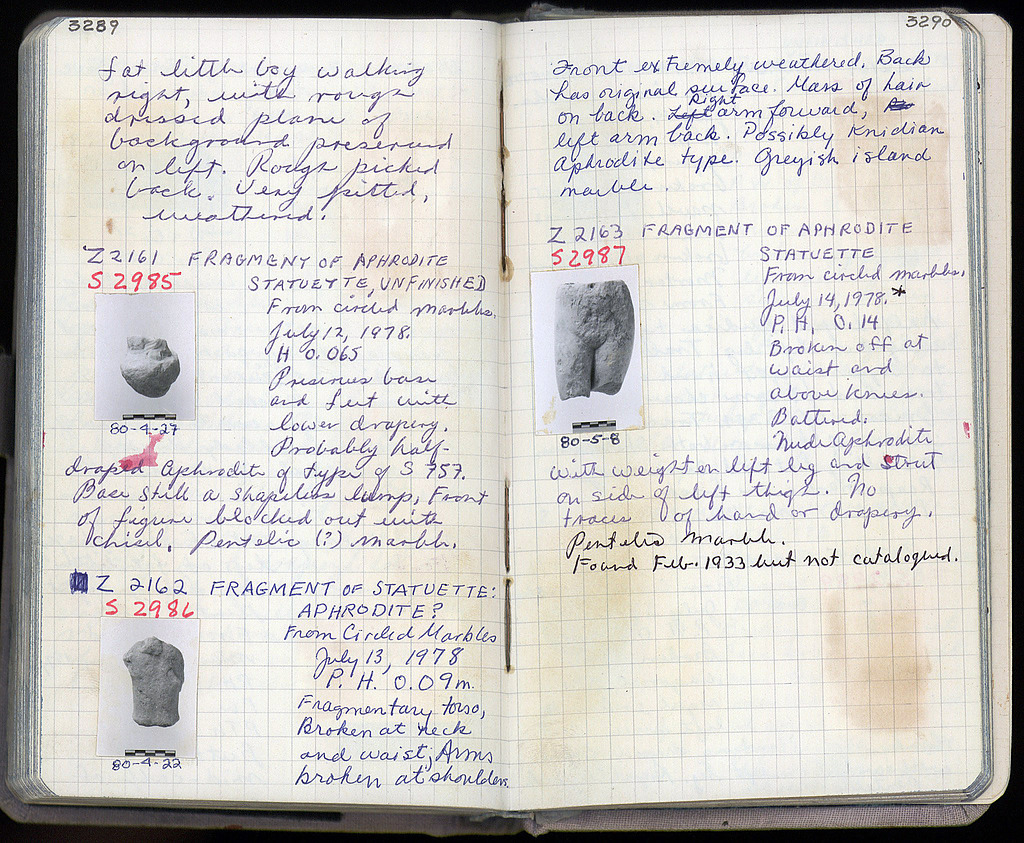 3289
fat little boy walking
right, with rough
dressed plane of
background preserved
on left. Rough picked
back. Very pitted,
weathered.
Z 2161 FRAGMENT OF APHRODITE
S 2985 STATUETTE, UNFINISHED
From circled marbles.
July 12, 1978.
H 0.065
Preserves base
and feet with
lower drapery.
Probably half-
draped Aphrodite of type of S 757.
Base still a shapeless lump, Front
of figure blocked out with
chisel. Pentelic (?) marble.
80-4-27
Z 2162 FRAGMENT OF STATUETTE:
S 2986 APHRODITE?
From Circled Marbles
July 13, 1978
P. H. 0.09m.
Fragmentary torso,
Broken at neck
and waist; Arms
broken at shoulders.
80-4-22
3290
Front extremely weathered. Back
has original surface. Mass of hair
on back. Left Right arm forward,
left arm back. Possibly Knidian
Aphrodite type. Greyish island
marble.
Z 2163 FRAGMENT OF APHRODITE
S 2987 STATUETTE
From circled marbles.
July 14, 1978.*
P. H. 0.14
Broken off at
waist and
above knees.
Battered.
Nude Aphrodite
with weight on left leg and strut
on side of left thigh. No
traces of hand or drapery.
Pentelic Marble.
Found Feb. 1933 but not catalogued.
80-5-8